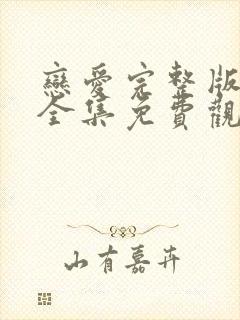 戀愛完整版
全集免費觀
山有嘉卉